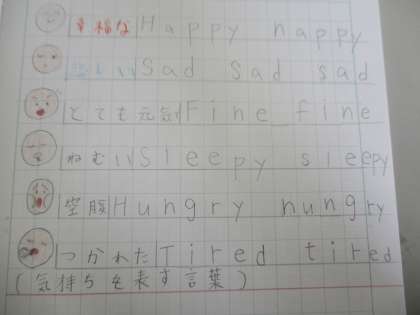 幸福な Happy happy
悲しい Sad Sad sad
とても元気 Fine fine
ねむい Sleepy sleepy
空腹 Hungry hungry
つかれた Tired tired
(気持ちを表す言葉)